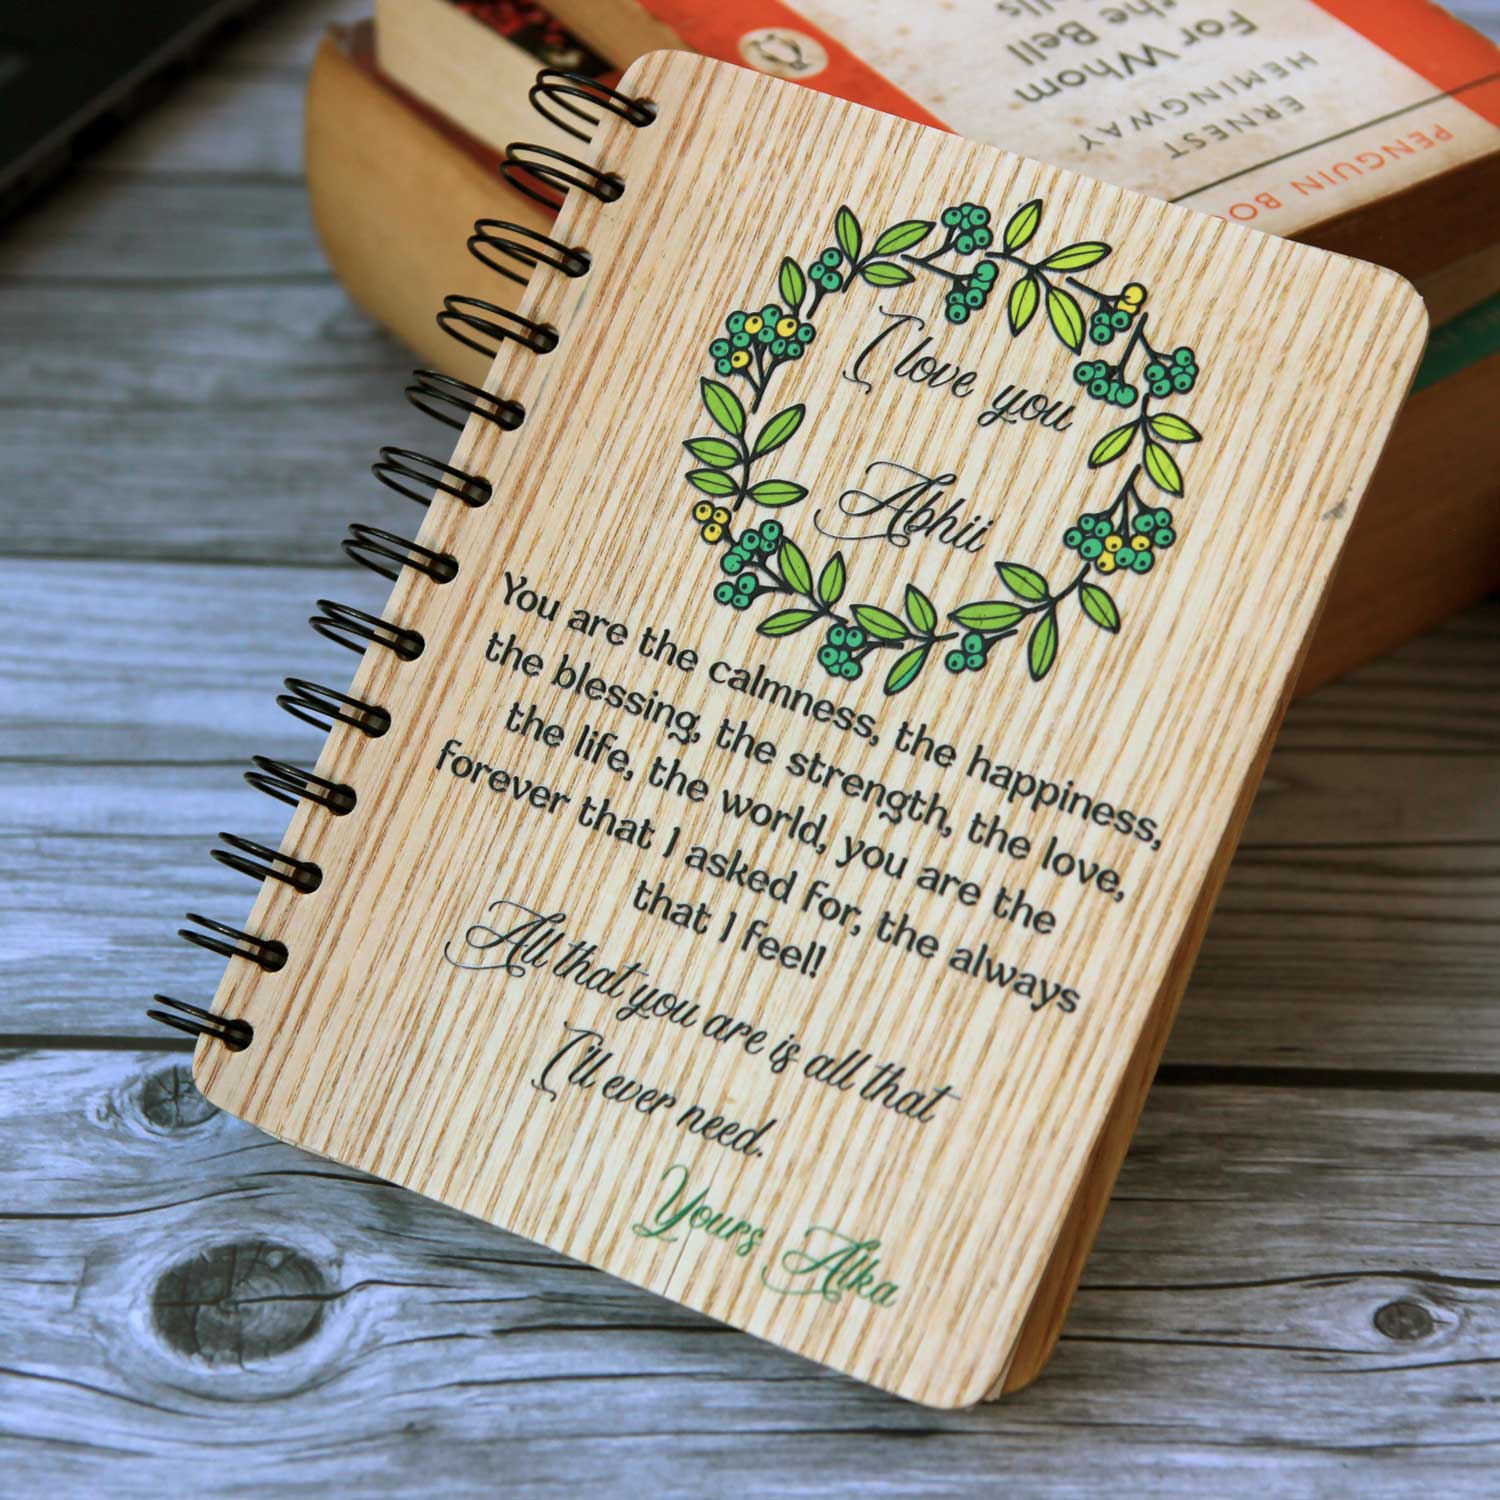 I love you
Abhii
You are the calmness, the happiness,
the blessing, the strength, the love,
the life, the world, you are the
forever that I asked for, the always
that I feel!
All that you are is all that
I'll ever need.
Yours Alka
For Whom
the Bell
ERNEST
HEMINGWAY
PENGUIN